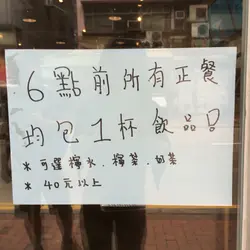 6點前所有正餐
均包1杯飲品!
* 可選檸水.檸茶.奶茶
* 40元以上